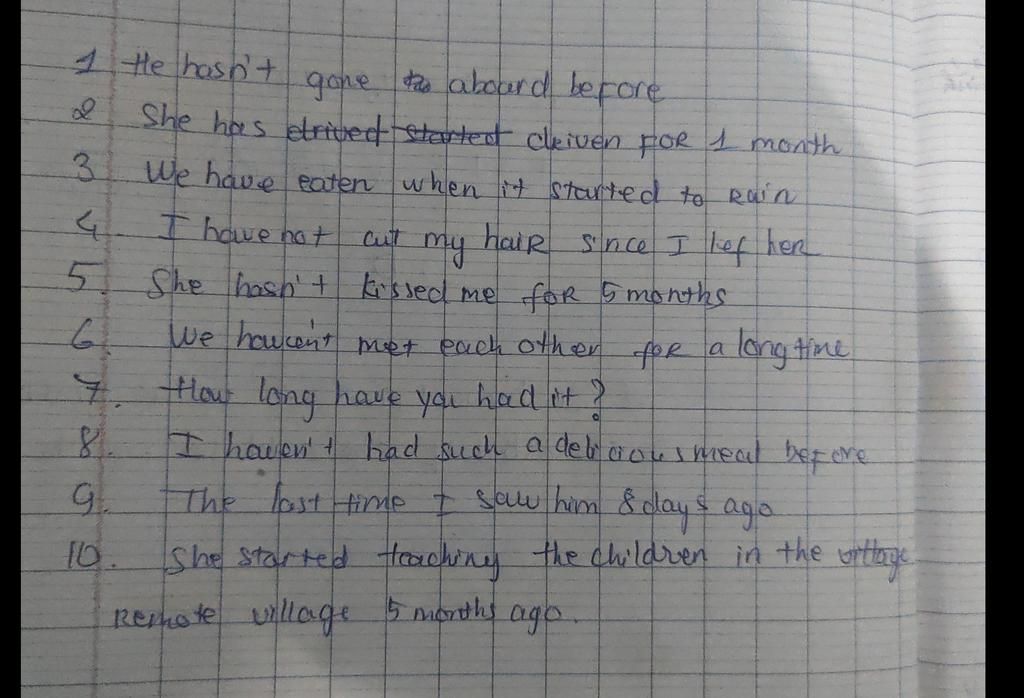 1 He hasn't gone to aboard before
2 She has drived started driven for 1 month
3 We have eaten when it started to rain
4 I have not cut my hair since I lef her
5. She hasn't kissed me for 5 months
6. We haven't met each other for a long time
7. How long have you had it?
8. I haven't had such a delicious meal before
9. The last time I saw him 8 days ago
10. She started teaching the children in the village
remote village 5 months ago.